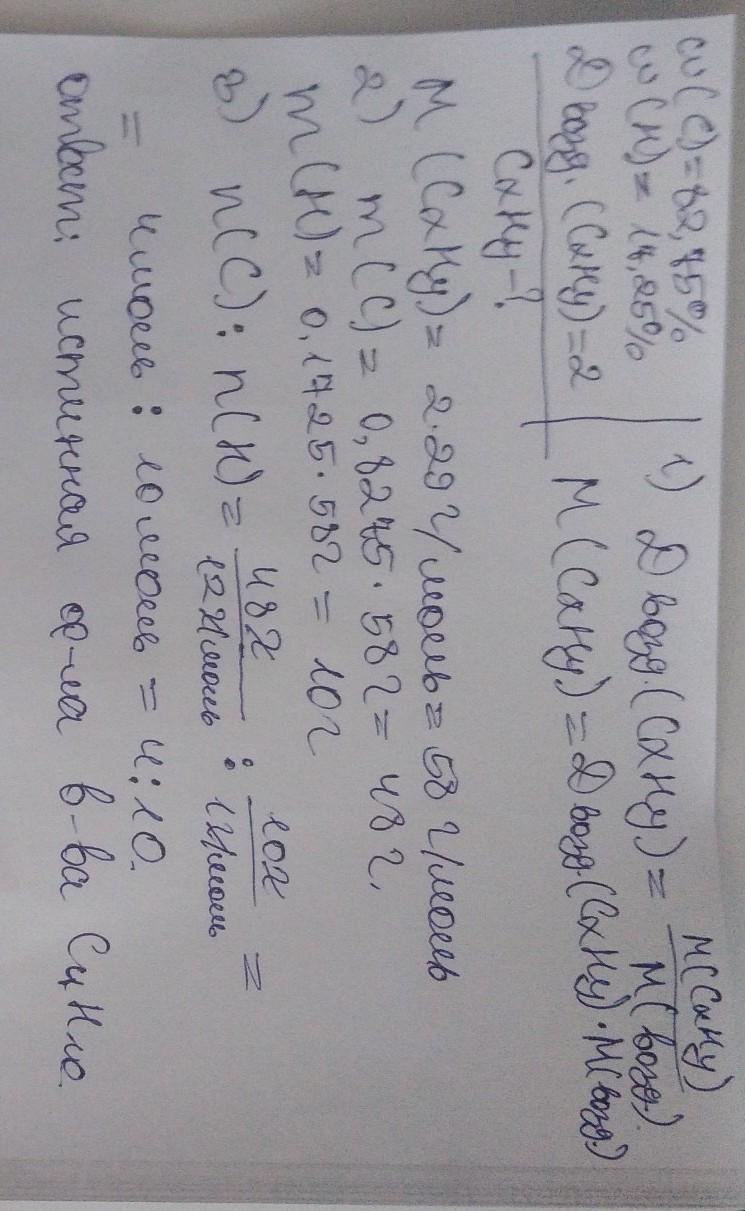 w(C)=82,75%
w(H)=17,25%
Dвозд.(CxHy)=2
CxHy-?
1) Dвозд.(CxHy)= M(CxHy)/M(возд.)
M(CxHy)=Dвозд.(CxHy)·M(возд.)
M(CxHy)=2·29г/моль=58г/моль
2) m(C)=0,8275·58г=48г.
m(H)=0,1725·58г=10г
3) n(C):n(H)= 48г/12г/моль : 10г/1г/моль =
= 4моль:10моль=4:10.
ответ: истинная ф-ла в-ва C4H10.